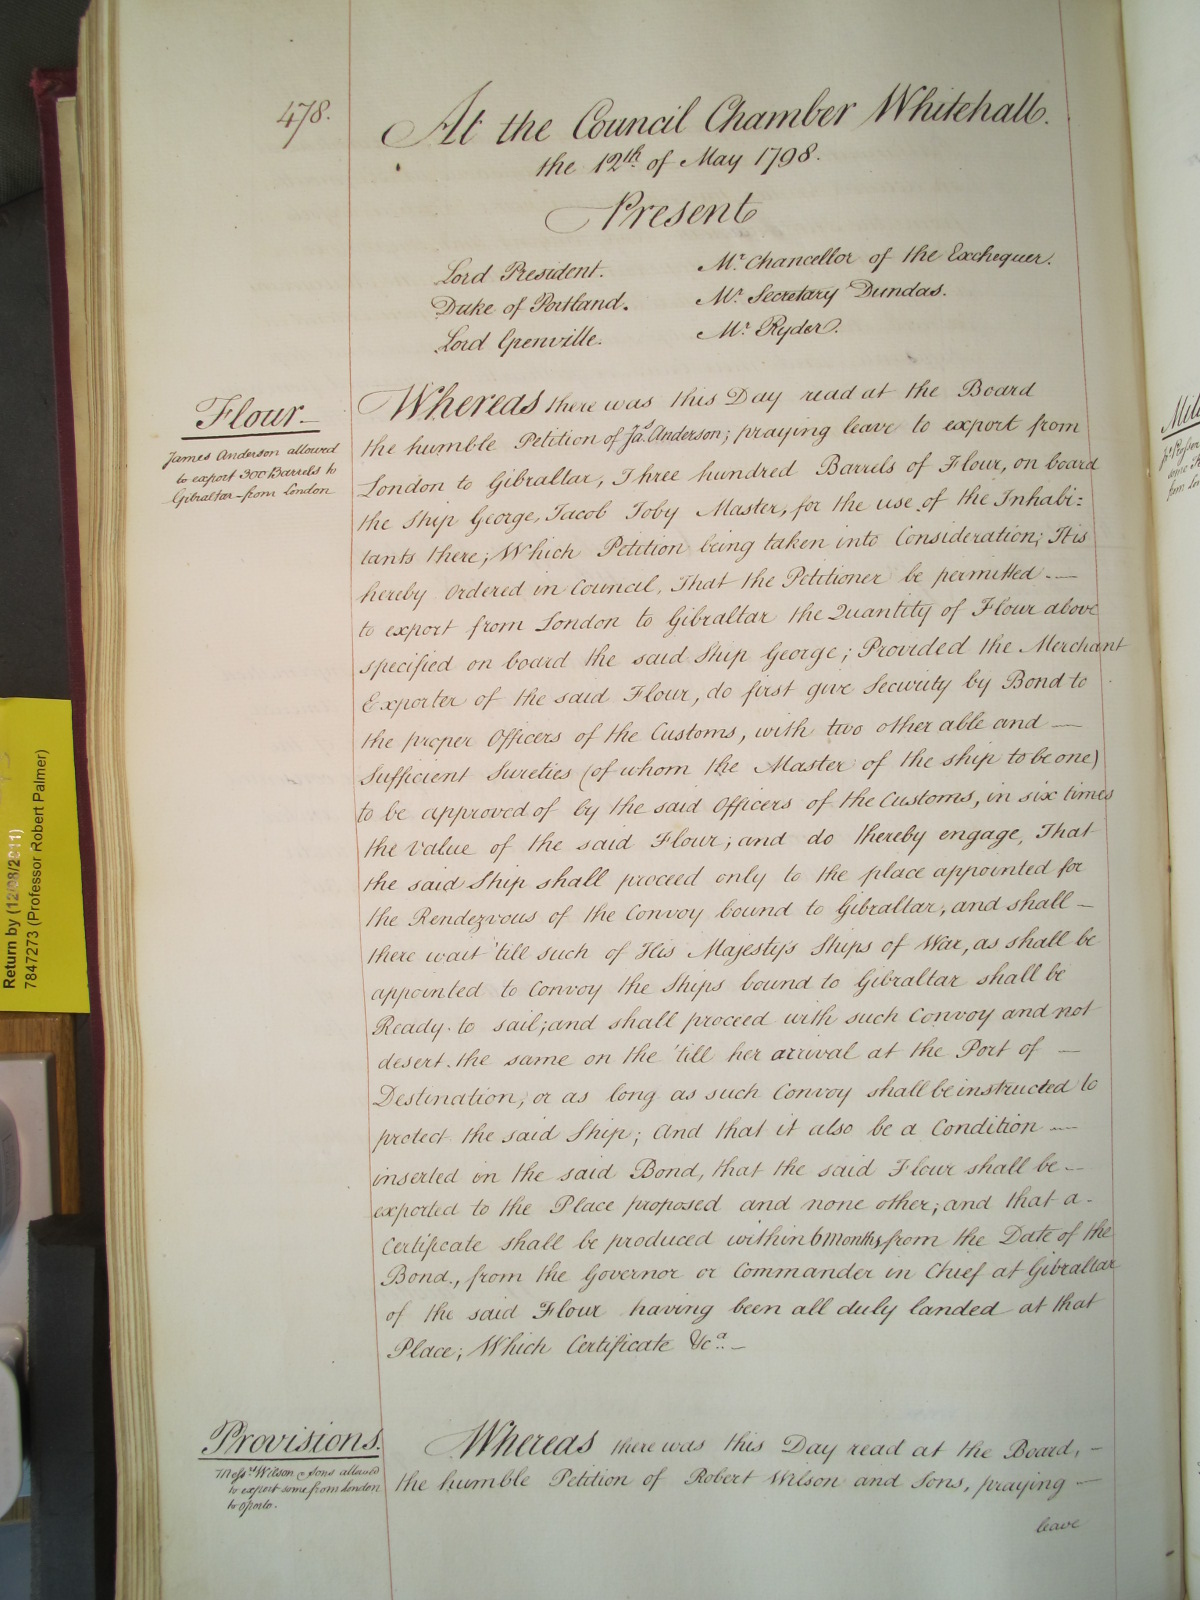 478.
At the Council Chamber Whitehall.
the 12th of May 1798.
Present
Lord President.
Duke of Portland.
Lord Grenville.
Mr. Chancellor of the Exchequer.
Mr. Secretary Dundas.
Mr. Ryder.
Flour —
James Anderson allowed
to export 300 Barrels to
Gibraltar – from London
Whereas there was this Day read at the Board
the humble Petition of Jas. Anderson; praying leave to export from
London to Gibraltar, Three hundred Barrels of Flour, on board
the Ship George, Jacob Toby Master, for the use of the Inhabi:
tants there; Which Petition being taken into Consideration; It is
hereby Ordered in Council, That the Petitioner be permitted —
to export from London to Gibraltar the Quantity of Flour above
specified on board the said Ship George; Provided the Merchant
Exporter of the said Flour, do first give Security by Bond to
the proper Officers of the Customs, with two other able and —
Sufficient Sureties (of whom the Master of the ship to be one)
to be approved of by the said Officers of the Customs, in six times
the Value of the said Flour; and do thereby engage, That
the said Ship shall proceed only to the place appointed for
the Rendezvous of the Convoy bound to Gibraltar, and shall —
there wait 'till such of His Majesty's Ships of War, as shall be
appointed to Convoy the Ships bound to Gibraltar shall be
Ready to sail; and shall proceed with such Convoy and not
desert the same on the 'till her arrival at the Port of —
Destination, or as long as such Convoy shall be instructed to
protect the said Ship; And that it also be a Condition —
inserted in the said Bond, that the said Flour shall be —
exported to the Place proposed and none other; and that a -
Certificate shall be produced within 6 Months from the Date of the
Bond, from the Governor or Commander in Chief at Gibraltar
of the said Flour having been all duly landed at that
Place; Which Certificate &ca. —
Provisions.
Messrs. Wilson & Sons allowed
to export some from London
to Oporto.
Whereas there was this Day read at the Board, —
the humble Petition of Robert Wilson and Sons, praying —
leave
Return by (12/08/2011)
7847273 (Professor Robert Palmer)